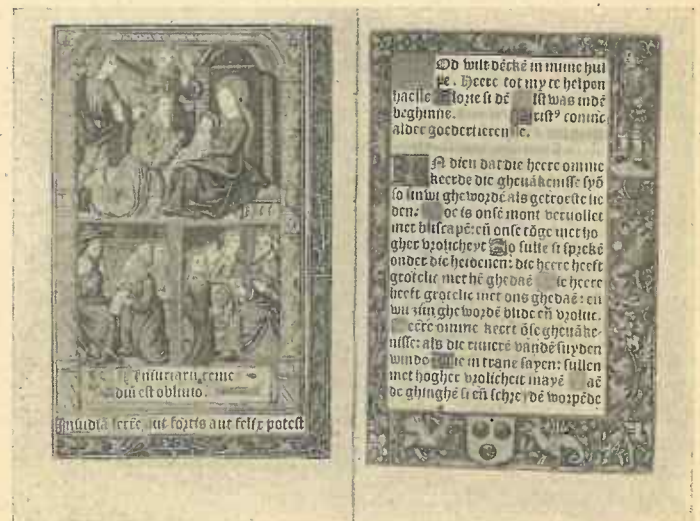 Iniuriarum reme
diū est obliuio.
ferre, aut fortis aut felix potest
Od wilt dēckē in mine hul
pe. Heere tot my te helpen
haeste lorie si dē ist was indē
beghinne. rist⁹ coninc
alder goedertieren e.
N dien dat die heere omme
keerde die gheuākenisse syō
so sin wi ghewordē als getroeste lie
den. oe is onse mont veruollet
met bliscapē: eñ onse tōge met ho
gher vrolicheyt So sulle si sprekē
onder die heidenen: die heere heeft
grotelic met hē ghedaē ie heere
heeft grotelic met ons ghedaē: en
wii zijn ghewordē blide eñ vrolic.
eere omme keert ōse gheuāke-
nisse: als die riuiere vandē suyden
winde ie in trane sayen: sullen
met hogher vrolicheit mayē aē
de ghinghē si eñ schreydē worpēde